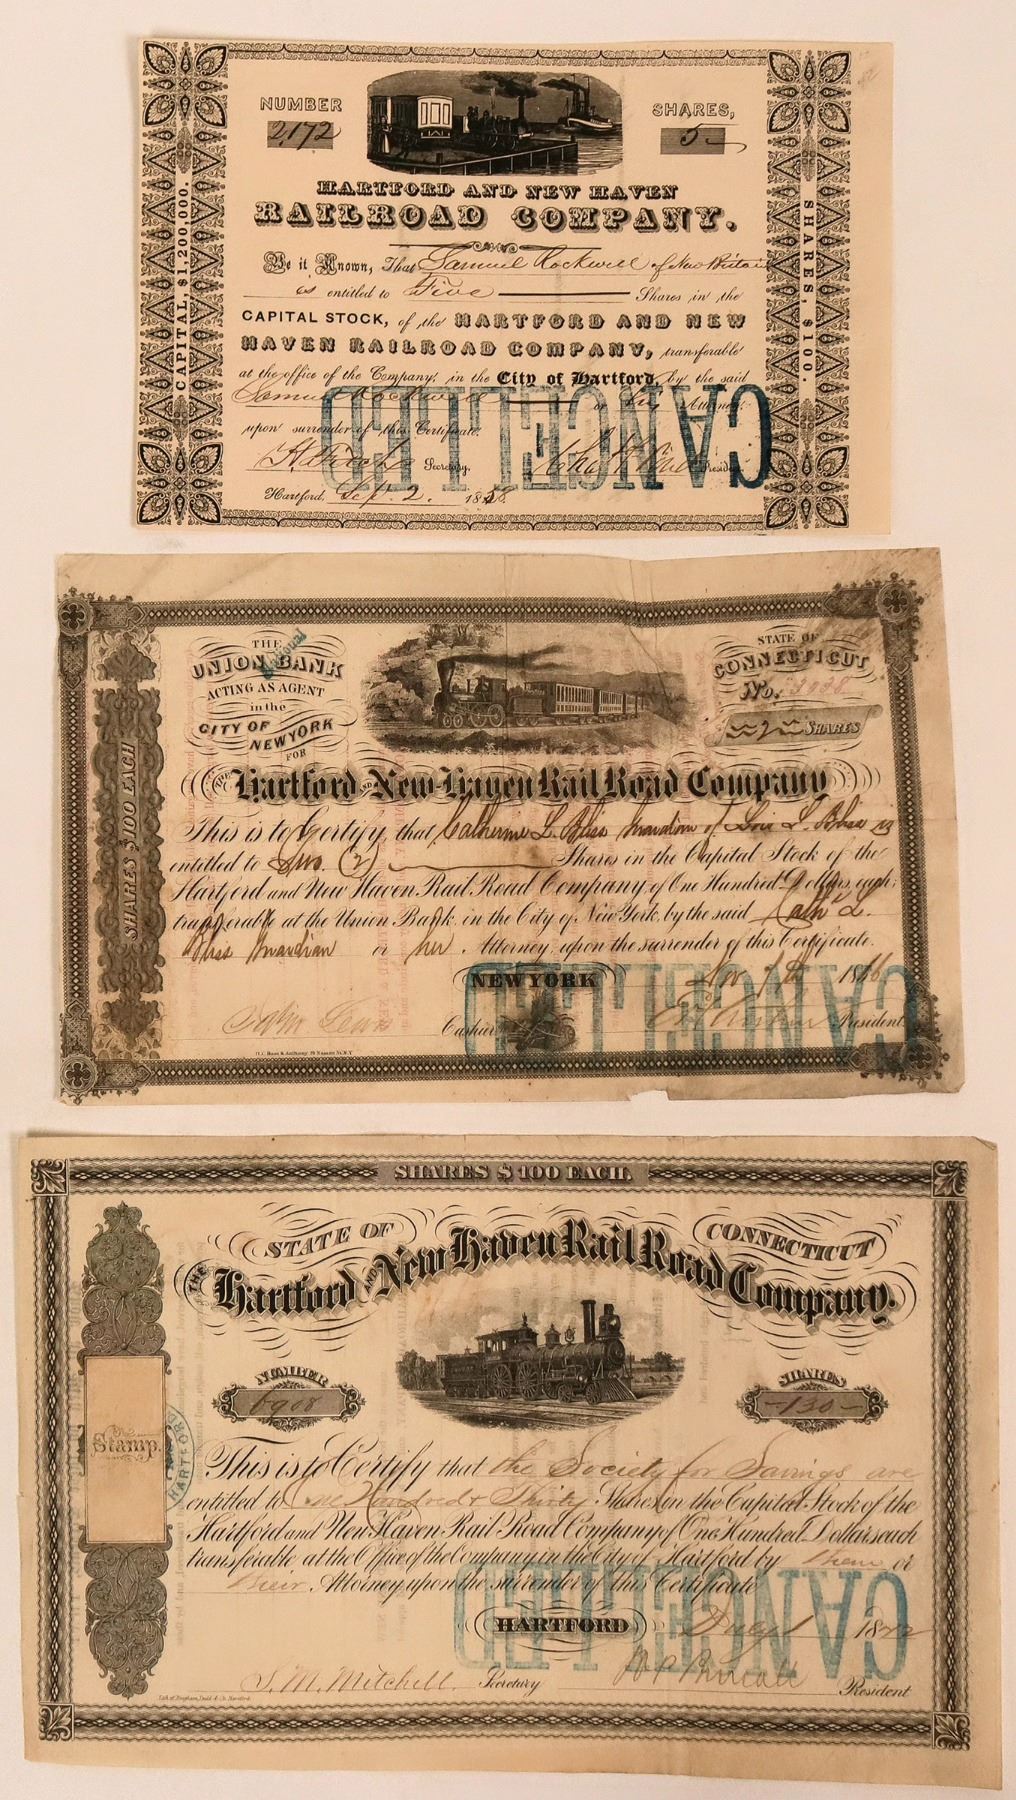 NUMBER
2,172
SHARES,
5
CAPITAL, $1,200,000.
SHARES, $100.
HARTFORD AND NEW HAVEN
RAILROAD COMPANY.
Be it Known, That Samuel Rockwell of New Britain
is entitled to Five Shares in the
CAPITAL STOCK, of the HARTFORD AND NEW
HAVEN RAILROAD COMPANY, transferable
at the office of the Company, in the City of Hartford, by the said
Samuel Rockwell or his Attorney
upon surrender of this Certificate.
Secretary. President.
Hartford, Sept 2. 18
CANCELLED
THE
UNION BANK
National
ACTING AS AGENT
in the
CITY OF
NEW YORK
FOR
STATE OF
CONNECTICUT
No. 3938
2 SHARES
SHARES $100 EACH
THE Hartford AND New-Haven Rail Road Company
This is to Certify, that Catherine L. Bliss Guardian of Lois L. Bliss is
entitled to Two (2) Shares in the Capital Stock of the
Hartford and New Haven Rail Road Company of One Hundred Dollars, each;
transferable at the Union Bank, in the City of New York, by the said Cath L.
Bliss Guardian or her Attorney, upon the surrender of this Certificate.
NEW YORK Nov 18
Cashier President
CANCELLED
SHARES $100 EACH.
STATE OF CONNECTICUT
THE Hartford AND New Haven Rail Road Company.
NUMBER
6908
SHARES
130
Stamp.
HARTFORD
This is to Certify that the Society for Savings are
entitled to One Hundred & Thirty Shares in the Capital Stock of the
Hartford and New Haven Rail Road Company of One Hundred Dollars each
transferable at the Office of the Company in the City of Hartford by them or
their Attorney, upon the surrender of this Certificate
HARTFORD July 1 1872
S. M. Mitchell. Secretary President
CANCELLED